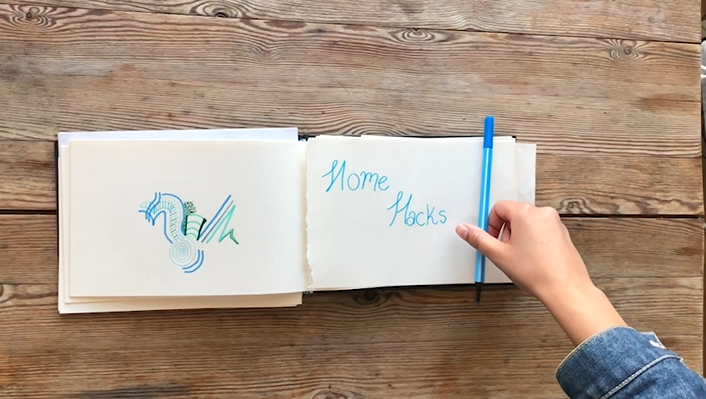 Home
Hacks